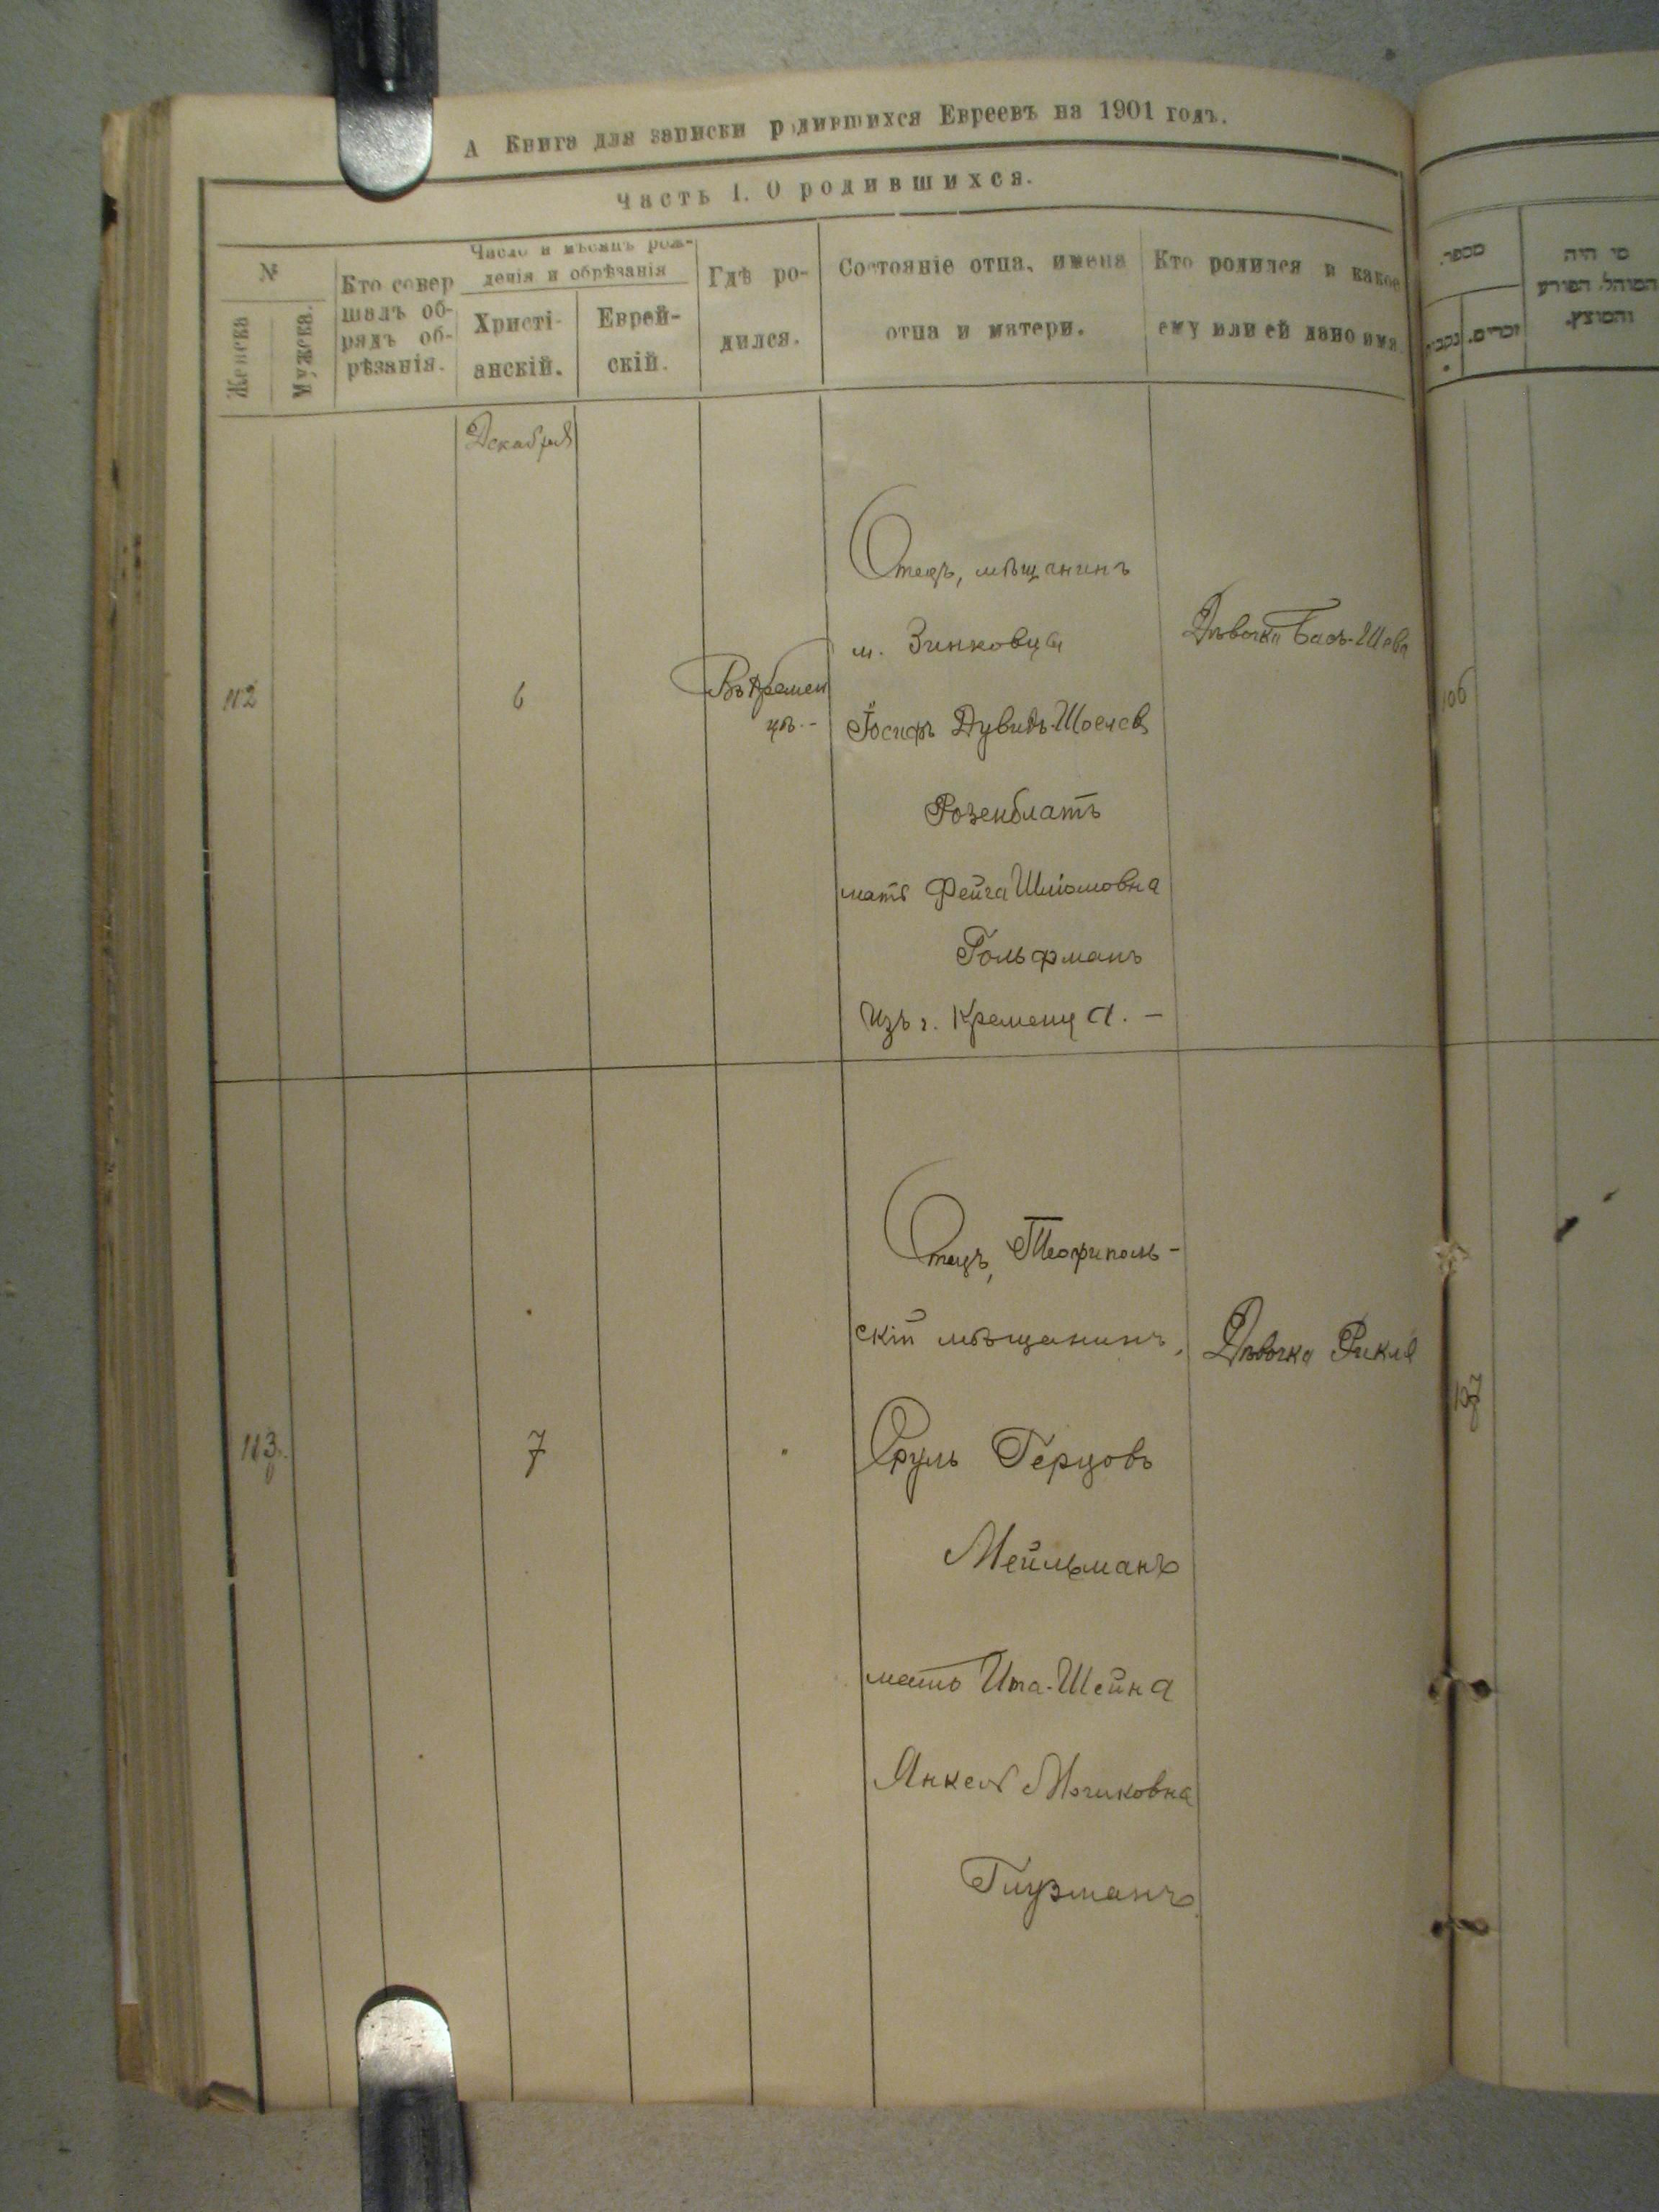 А Книга для записки родившихся Евреевъ на 1901 годъ.
Часть I. О родившихся.
№
Женска
Мужска.
Кто совер
шалъ об-
рядъ об-
рѣзанія.
Число и мѣсяцъ рож-
денія и обрѣзанія
Христі-
анскій.
Еврей-
скій.
Гдѣ ро-
дился.
Состояніе отца, имена
отца и матери.
Кто родился и какое
ему или ей дано имя.
מספר.
נקבות
זכרים.
מי היה
המוהל הפורע
והמוצץ.
Декабря
112
6
Въ Кремен
цѣ.-
Отецъ, мѣщанинъ
м. Зинковца
Іосифъ Дувидъ-Шоелев
Розенблатъ
мать Фейга Шліомовна
Гольфманъ
Изъ г. Кременца. -
Дѣвочка Бась-Шева
106
113.
7
Отецъ, Теофиполь-
скій мѣщанинъ,
Сруль Герцовъ
Мейльманъ
мать Ита-Шейна
Янкель
Глузманъ
Дѣвочка Рикля
107